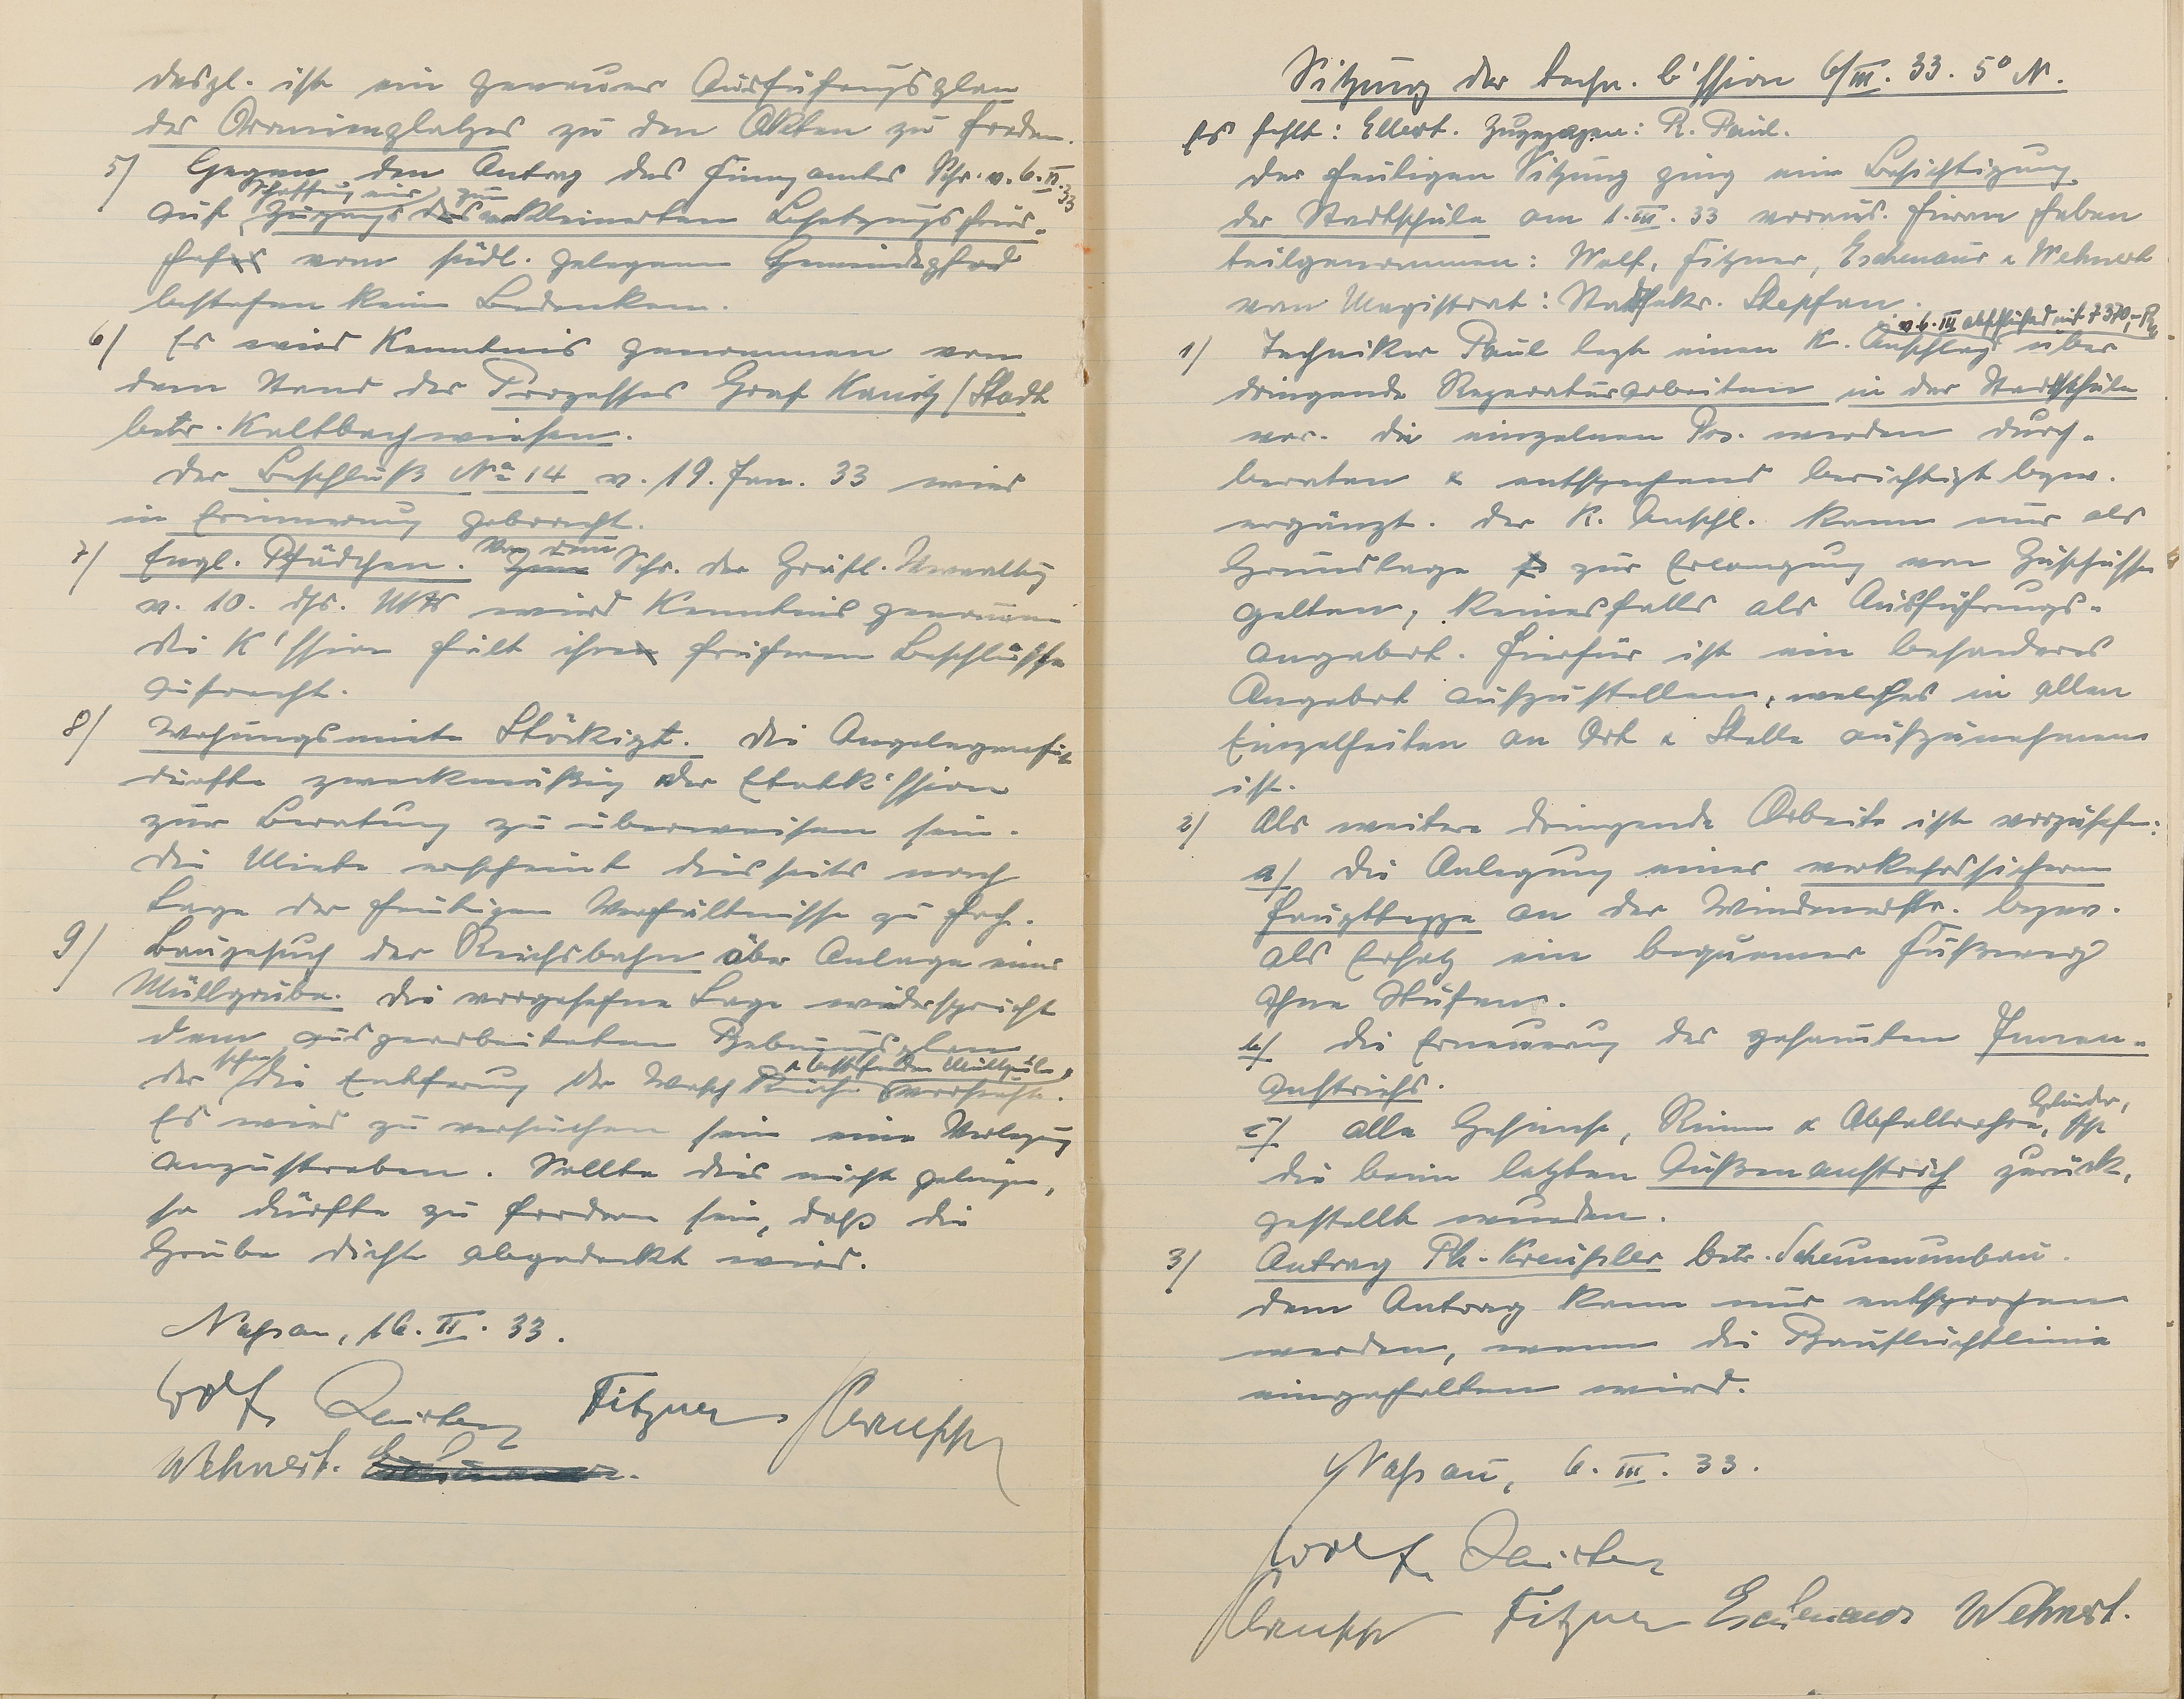 desgl. ist ein genauer Ausführungsplan
des Oranienplatzes zu den Akten zu fordern.
5/ Gegen den Antrag des Finzamtes Schr. v. 6.II.33
Schaffung eines zum
auf Zugangs des verkleinerten Besatzungsfried-
hofes vom südl. gelegenen Gemeindepfad
bestehen keine Bedenken.
6/ Es wird Kenntnis genommen von
dem Stand des Prozesses Graf Kanitz/Stadt
betr. Kaltbachwiesen.
Der Beschluß No 14 v. 19. Jan. 33 wird
in Erinnerung gebracht.
7/ Engl. Pfädchen. Von dem Schr. der Gräfl. Verwaltg
v. 10. ds. Mts wird Kenntnis genommen
die K'ssion hält ihre früheren Beschlüsse
aufrecht.
8/ Wohnungsmiete Stöckigt. Die Angelegenheit
dürfte zweckmäßig der Etatk'ssion
zur Beratung zu überweisen sein.
Die Miete erscheint diesseits nach
Lage der heutigen Verhältnisse zu hoch.
9/ Baugesuch der Reichsbahn über Anlage einer
Müllgrube. Die vorgesehene Lage widerspricht
dem ausgearbeiteten Bebauungsplan
schon & bestehenden Müllgrube
der die Entfernung der Waschküche vorsieht.
Es wird zu versuchen sein eine Verlegung
anzustreben. Sollte dies nicht gelingen,
so dürfte zu fordern sein, daß die
Grube dicht abgedeckt wird.
Nassau, 16.II.33.
Wolf Fitzner
Wehnert.
Sitzung der techn. K'ssion 6/III.33. 5° N.
Es fehlt: Ellert. Zugezogen: R. Paul.
Der heutigen Sitzung ging eine Besichtigung
der Stadtschule am 1.III.33 voraus. Hieran haben
teilgenommen: Wolf, Fitzner, Eschenauer & Wehnert
vom Magistrat: Stadtsekr. Stephan.
v. 6.III abschließend mit 7370,- RM
1/ Techniker Paul legt einen K. Anschlag über
dringende Reparaturarbeiten in der Stadtschule
vor. Die einzelnen Pos. werden durch-
beraten & entsprechend berichtigt bezw.
ergänzt. Der K. Anschl. kann nur als
Grundlage zur Erlangung von Zuschüssen
gelten, keinesfalls als Ausführungs-
angebot. Hierfür ist ein besonderes
Angebot aufzustellen, welches in allen
Einzelheiten an Ort & Stelle aufzunehmen
ist.
2/ Als weitere dringende Arbeit ist vorzusehen:
a/ Die Anlegung einer verkehrssicheren
Haupttreppe an der Windenerstr. bezw.
als Ersatz ein bequemer Fußweg
ohne Stufen.
b/ Die Erneuerung des gesamten Innen-
anstrichs.
Geländer,
c/ alle Gesimse, Rinnen & Abfallrohre,
die beim letzten Außenanstrich zurück-
gestellt wurden.
3/ Antrag Ph. Kreußler betr. Scheunenumbau.
Dem Antrag kann nur entsprochen
werden, wenn die Baufluchtlinie
eingehalten wird.
Nassau, 6.III.33.
Wolf
Fitzner Eschenauer Wehnert.